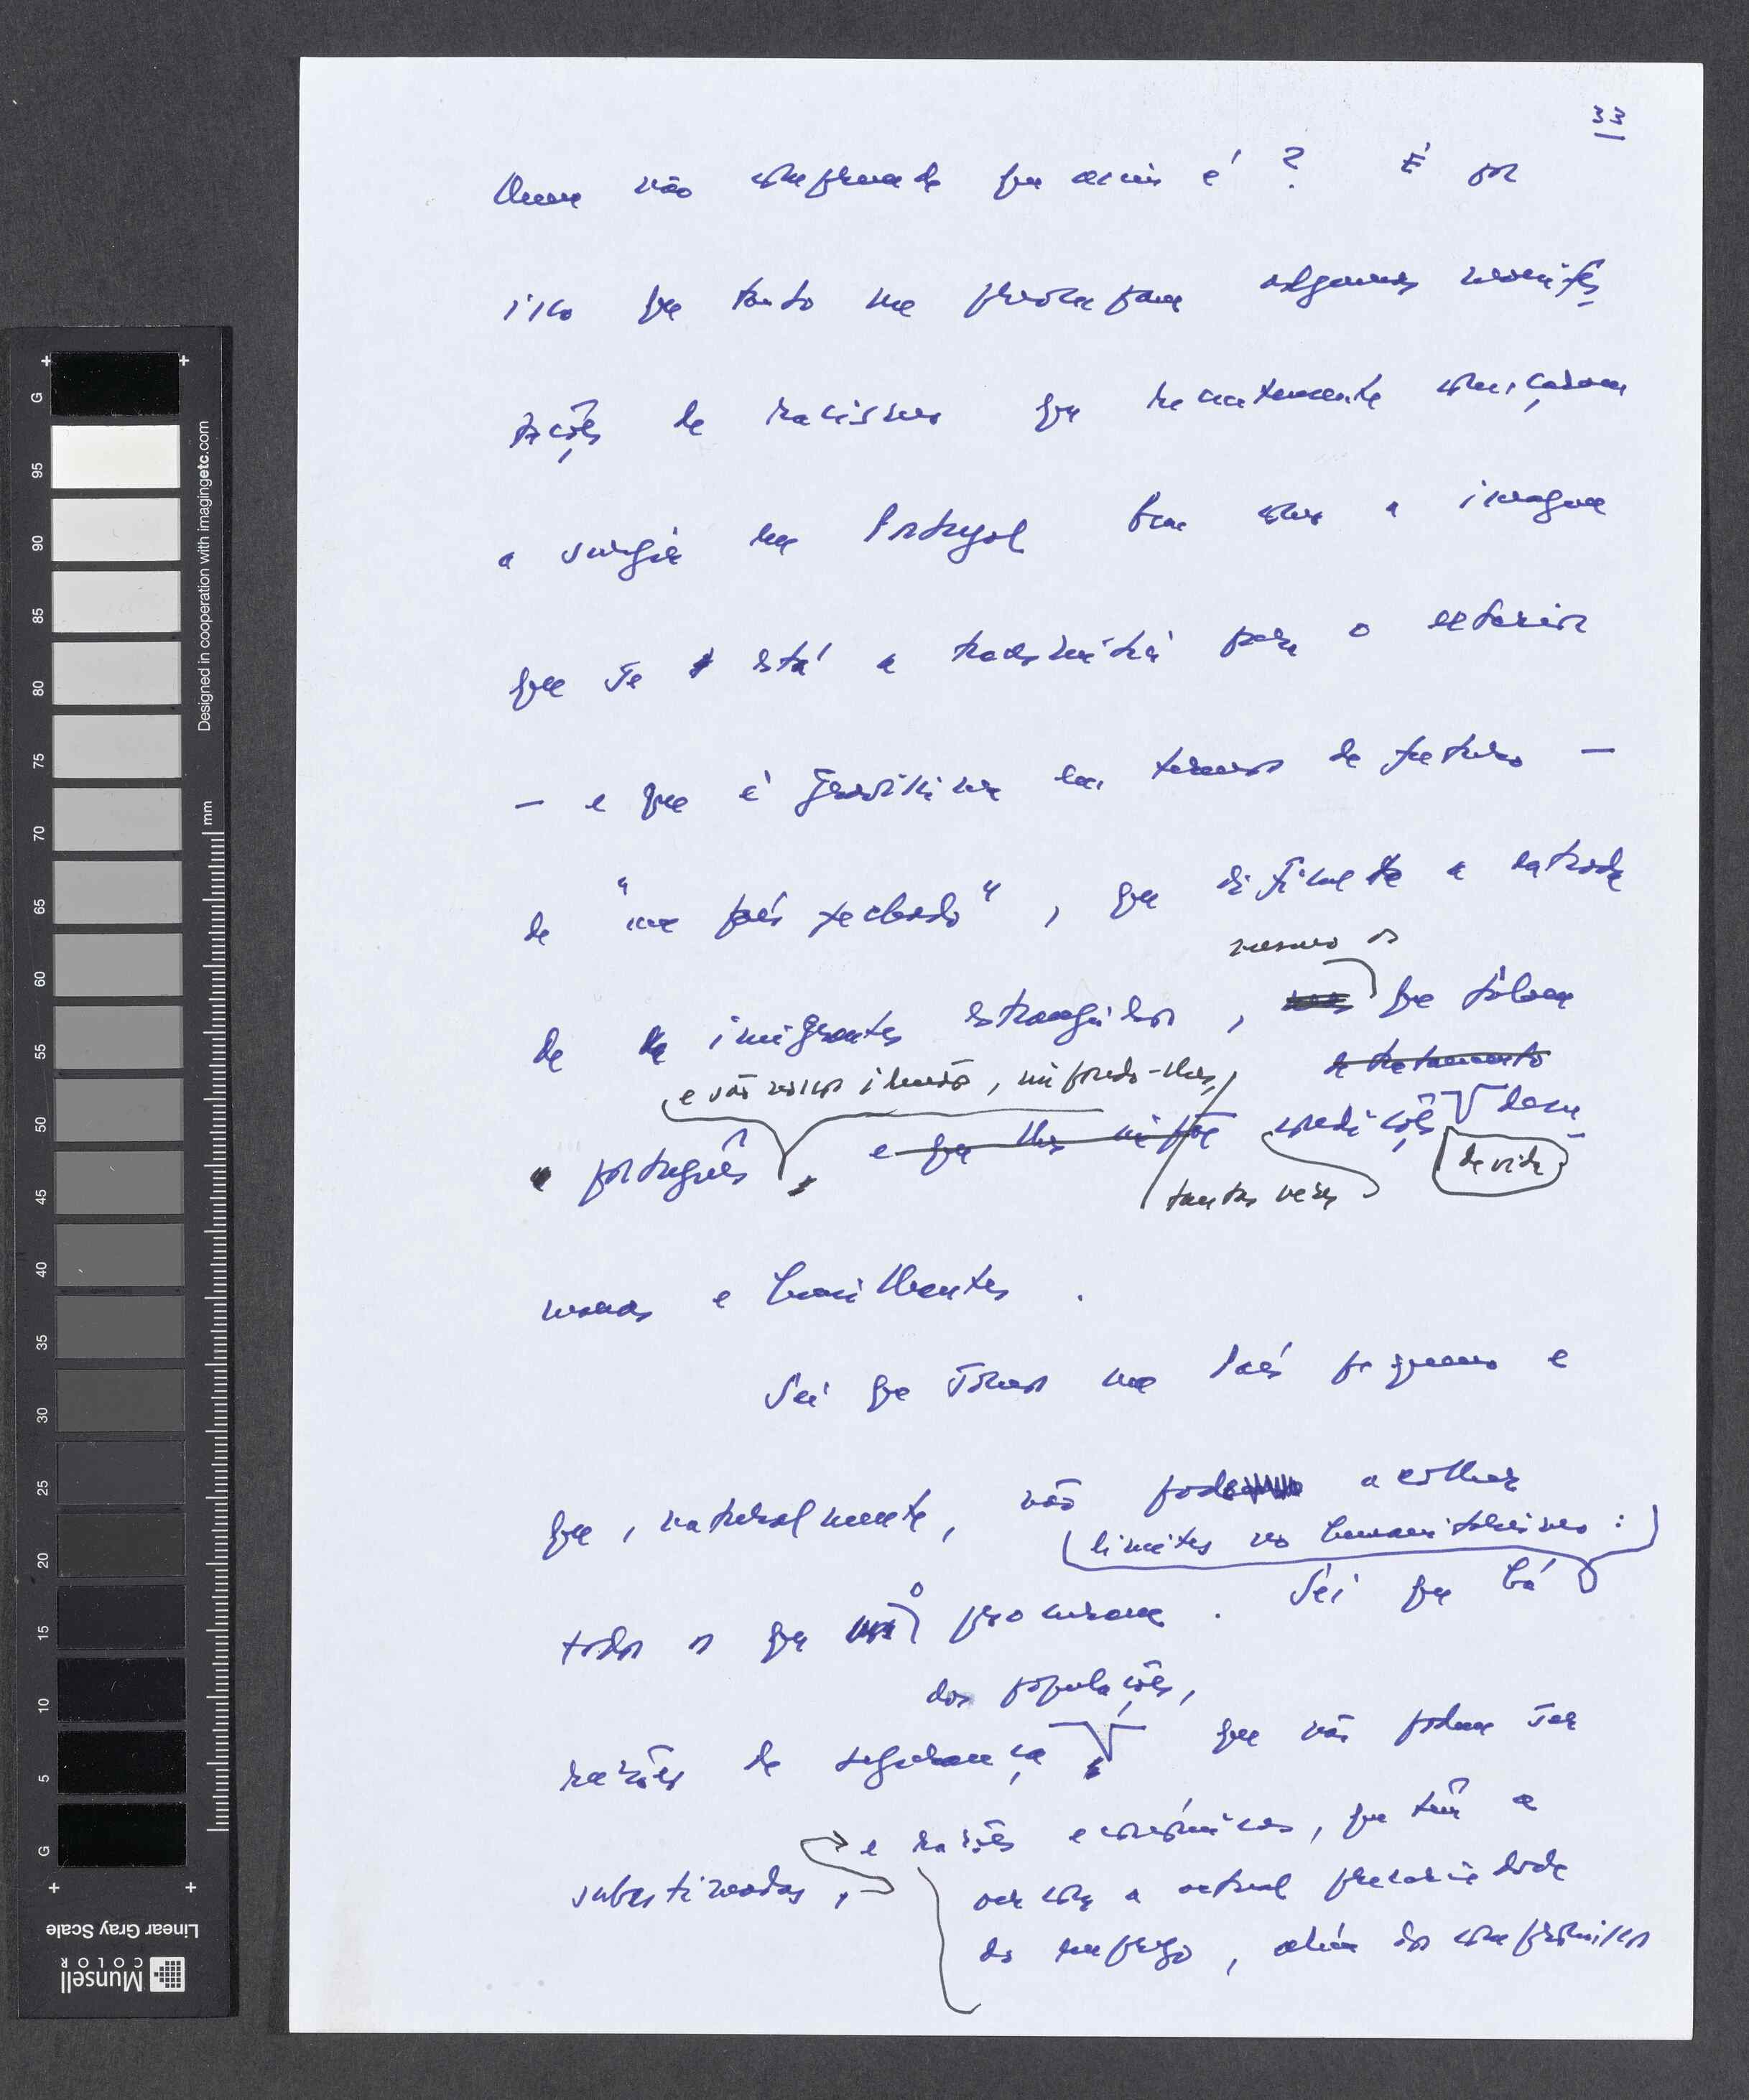 33
Quem não compreende que assim é? É por
isso que tanto me preocupam algumas manifes
tações de racismo que recentemente começaram
a surgir em Portugal bem como a imagem
que se está a transmitir para o exterior
— e que é gravíssima em termos de futuro —
de "um país fechado", que dificulta a entrada
mesmo os
de imigrantes estrangeiros, que falam
e são nossos irmãos, impondo-lhes, de tratamento
português, e que lhes impõe condições desu
tantas vezes de vida
manas e humilhantes.
Sei que somos um País pequeno e
que, naturalmente, não pode acolher
limites no humanitarismo:
todos os que o procuram. Sei que há
das populações,
razões de segurança que não podem ser
e razões económicas, que têm a
subestimadas, ver com a actual precariedade
do emprego, além dos compromissos
G
95
90
85
80
75
70
65
60
55
50
45
40
35
30
25
20
15
10
5
G
mm
Designed in cooperation with imagingetc.com
Linear Gray Scale
Munsell
COLOR